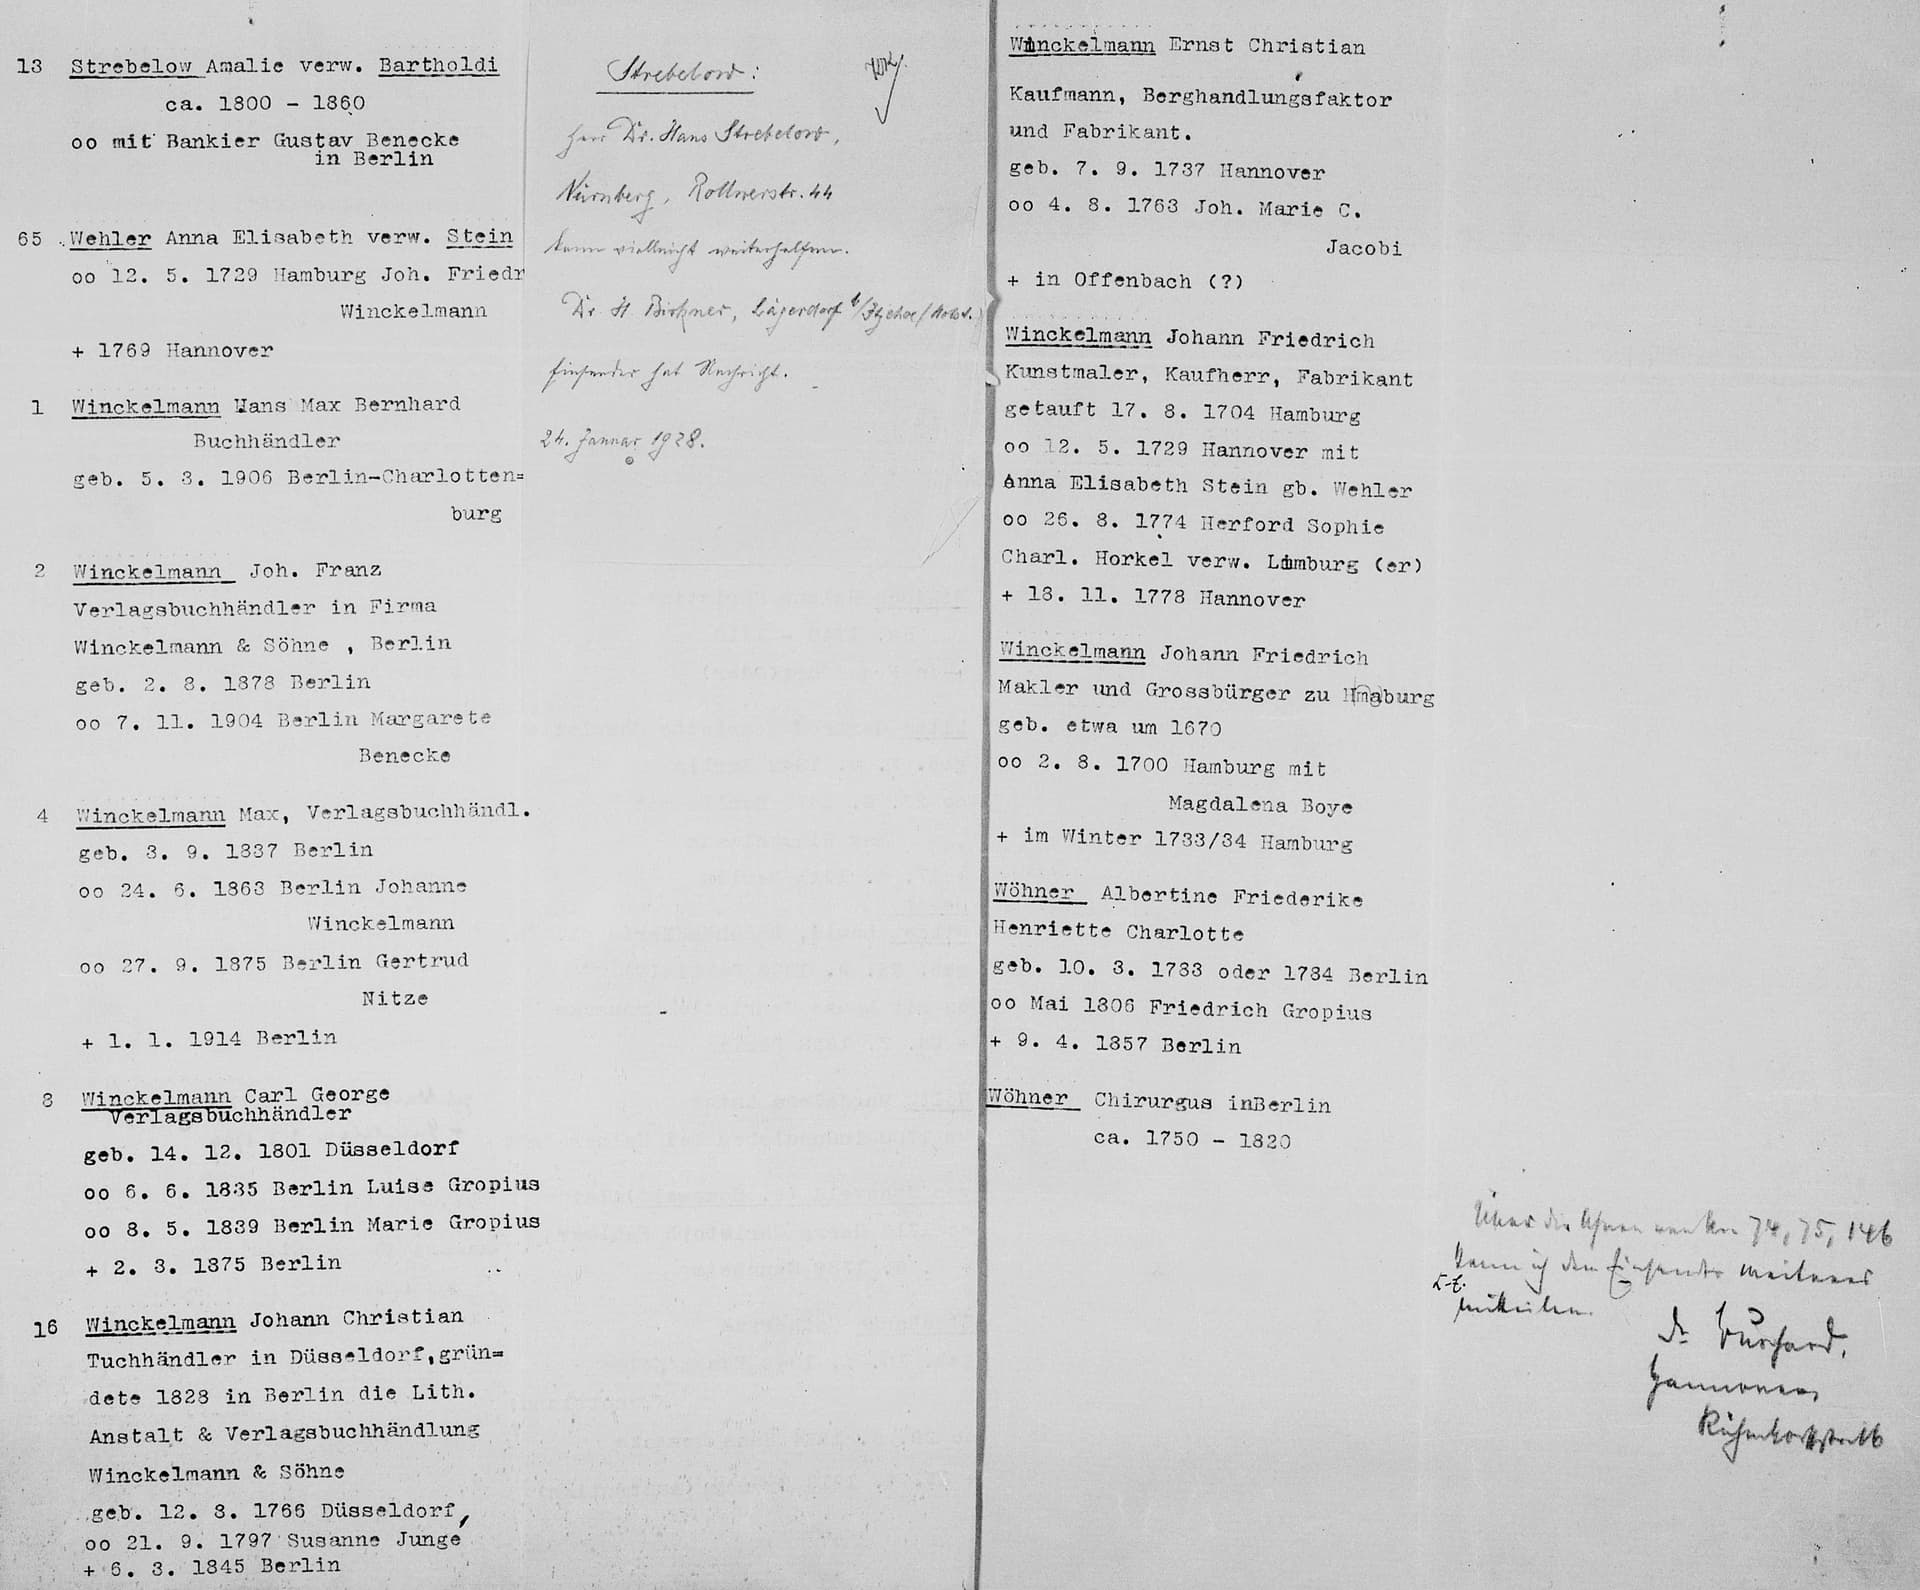 13 Strebelow Amalie verw. Bartholdi
ca. 1800 - 1860
oo mit Bankier Gustav Benecke
in Berlin
65 Wehler Anna Elisabeth verw. Stein
oo 12. 5. 1729 Hamburg Joh. Friedr
Winckelmann
+ 1769 Hannover
1 Winckelmann Hans Max Bernhard
Buchhändler
geb. 5. 3. 1906 Berlin-Charlotten=
burg
2 Winckelmann Joh. Franz
Verlagsbuchhändler in Firma
Winckelmann & Söhne , Berlin
geb. 2. 8. 1878 Berlin
oo 7. 11. 1904 Berlin Margarete
Benecke
4 Winckelmann Max, Verlagsbuchhändl.
geb. 3. 9. 1837 Berlin
oo 24. 6. 1863 Berlin Johanne
Winckelmann
oo 27. 9. 1875 Berlin Gertrud
Nitze
+ 1. 1. 1914 Berlin
8 Winckelmann Carl George
Verlagsbuchhändler
geb. 14. 12. 1801 Düsseldorf
oo 6. 6. 1835 Berlin Luise Gropius
oo 8. 5. 1839 Berlin Marie Gropius
+ 2. 3. 1875 Berlin
16 Winckelmann Johann Christian
Tuchhändler in Düsseldorf,grün=
dete 1828 in Berlin die Lith.
Anstalt & Verlagsbuchhändlung
Winckelmann & Söhne
geb. 12. 8. 1766 Düsseldorf,
oo 21. 9. 1797 Susanne Junge
+ 6. 3. 1845 Berlin
Strebelow:
Herr Dr. Hans Strebelow,
Nürnberg, 44
kann vielleicht weiterhelfen.
Dr. H. Lägerdorf b/Itzehoe/Holst.
Einsender hat Nachricht.
24. Januar 1928.
Winckelmann Ernst Christian
Kaufmann, Berghandlungsfaktor
und Fabrikant.
geb. 7. 9. 1737 Hannover
oo 4. 8. 1763 Joh. Marie C.
Jacobi
+ in Offenbach (?)
Winckelmann Johann Friedrich
Kunstmaler, Kaufherr, Fabrikant
getauft 17. 8. 1704 Hamburg
oo 12. 5. 1729 Hannover mit
Anna Elisabeth Stein gb. Wehler
oo 26. 8. 1774 Herford Sophie
Charl. Horkel verw. Limburg (er)
+ 18. 11. 1778 Hannover
Winckelmann Johann Friedrich
Makler und Grossbürger zu Hmaburg
geb. etwa um 1670
oo 2. 8. 1700 Hamburg mit
Magdalena Boye
+ im Winter 1733/34 Hamburg
Wöhner Albertine Friederike
Henriette Charlotte
geb. 10. 3. 1783 oder 1784 Berlin
oo Mai 1806 Friedrich Gropius
+ 9. 4. 1857 Berlin
Wöhner Chirurgus inBerlin
ca. 1750 - 1820
Über die Ahnen 74, 75, 146
kann ich dem Einsender weiteres
mitteilen.
Dr.
Hannover,